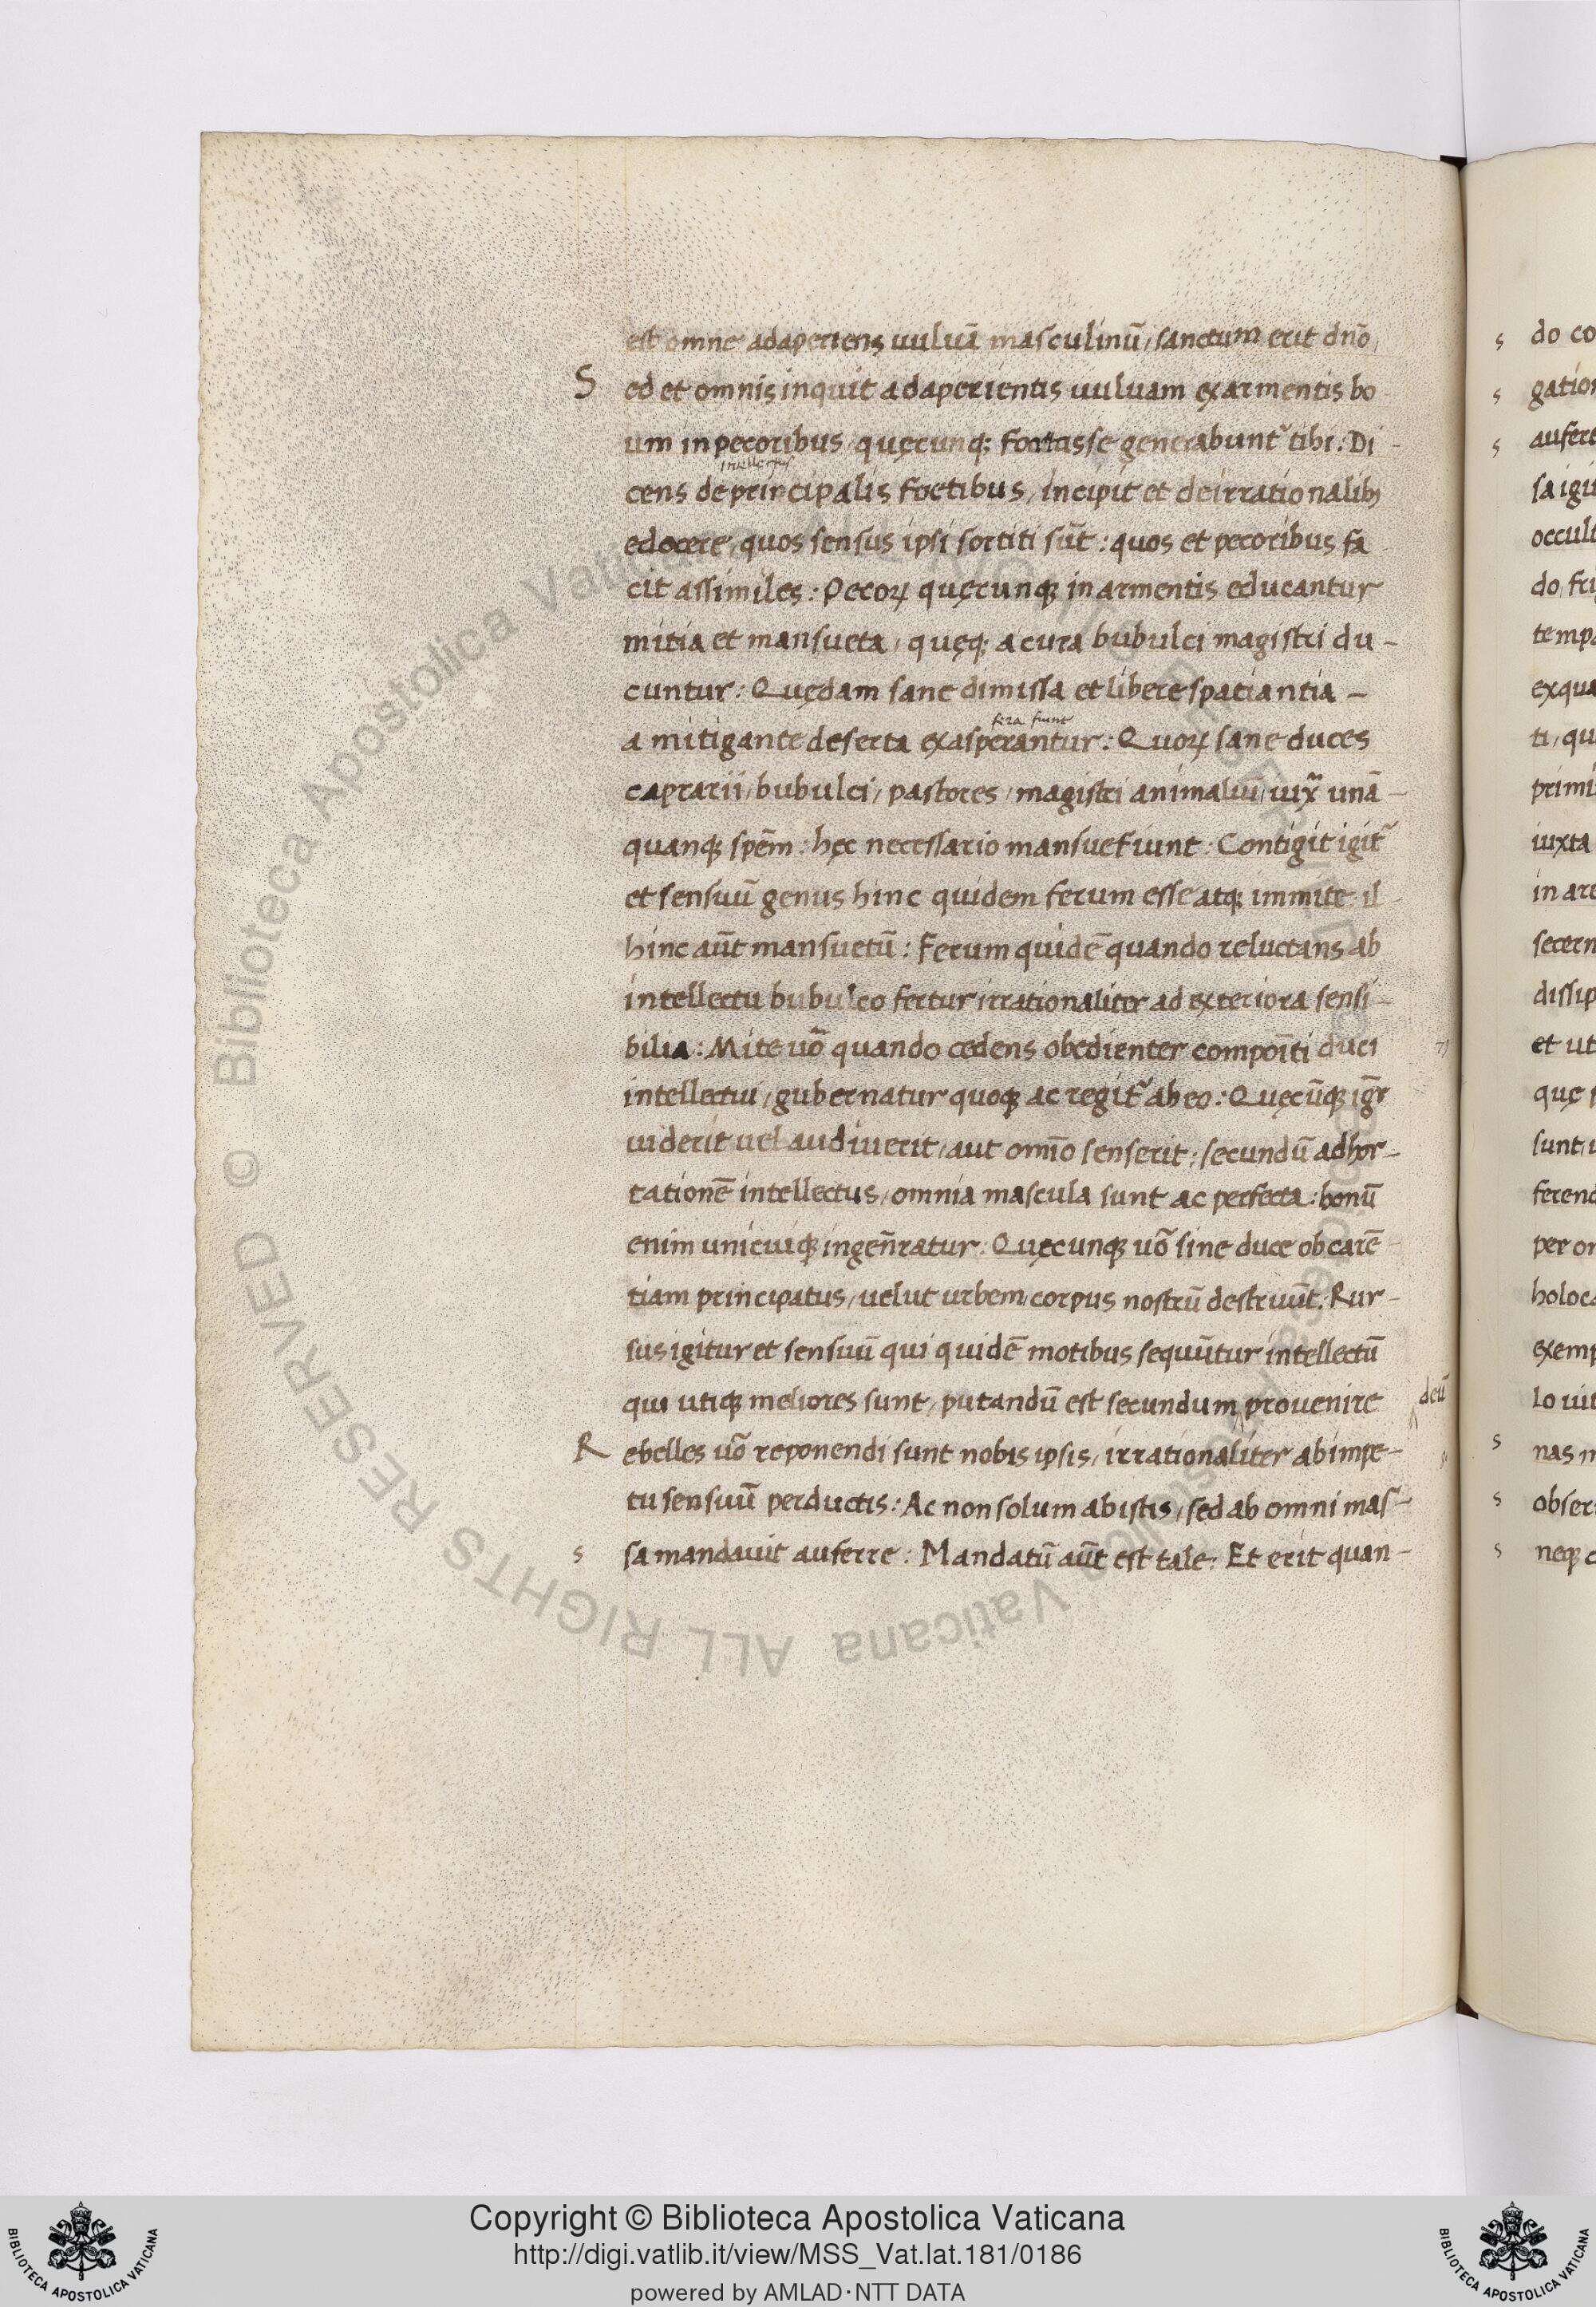 est omne adaperiens uuluā masculinū, sanctum erit dn̄o,
S ed et omnis inquit adaperientis uuluam ex armentis bo
um in pecoribus, quęcunq; fortasse generabunt᷑ tibi: Di-
intellectus
cens de principalis foetibus, incipit et de irrationalib;
edocere, quos sensus ipsi sortiti sūt: quos et pecoribus fa-
cit assimiles: Pecoꝝ quęcunqꝫ in armentis educantur
mitia et mansueta, quęq; a cura bubulci magistri du-
cuntur: Quędam sane dimissa et libere spatiantia -
fera fiunt
a mitigante deserta exasperantur: Quoꝝ sane duces
caprarii, bubulci, pastores, magistri animaliū, iuxͣ unā-
quanqꝫ spēm: hęc necessario mansuefiunt: Contigit igit᷑
et sensuū genus hinc quidem ferum esse atq; immite, il-
hinc aūt mansuetū: Ferum quidē quando reluctans ab
intellectu bubulco fertur irrationaliter ad exteriora sensi-
bilia: Mite uō quando cedens obedienter compoīti duci
intellectui, gubernatur quoqꝫ ac regit᷑ ab eo: Quęcūqꝫ iḡr
uiderit uel audiuerit, aut omīo senserit: secundū adhor-
tationē intellectus, omnia mascula sunt ac perfecta: bonū
enim unicuiqꝫ ingen̄ratur: Quęcunqꝫ uō sine duce ob carē-
tiam principatus, uelut urbem corpus nostrū destruūt: Rur-
sus igitur et sensuū qui quidē motibus sequūtur intellectū
qui utiqꝫ meliores sunt, putandū est secundum ⁁ prouenire ⁁ deū
R ebelles uō reponendi sunt nobis ipsis, irrationaliter ab impe-
tu sensuū perductis: Ac non solum ab istis, sed ab omni mas-
s sa mandauit auferre: Mandatū aūt est tale: Et erit quan-
s do co
s gation
s aufere
sa igi
occult
do, fru
temp
ex qua
ti, qu
primi
iuxta
in are
secern
dissip
et ut
quę s
sunt, u
ferend
per or
holoca
exemp
lo uit
s nas m
s obser
s neqꝫ c
© Biblioteca Apostolica Vaticana ALL RIGHTS RESERVED
Copyright © Biblioteca Apostolica Vaticana
http://digi.vatlib.it/view/MSS_Vat.lat.181/0186
powered by AMLAD·NTT DATA
BIBLIOTECA APOSTOLICA VATICANA
BIBLIOTECA APOSTOLICA VATICANA